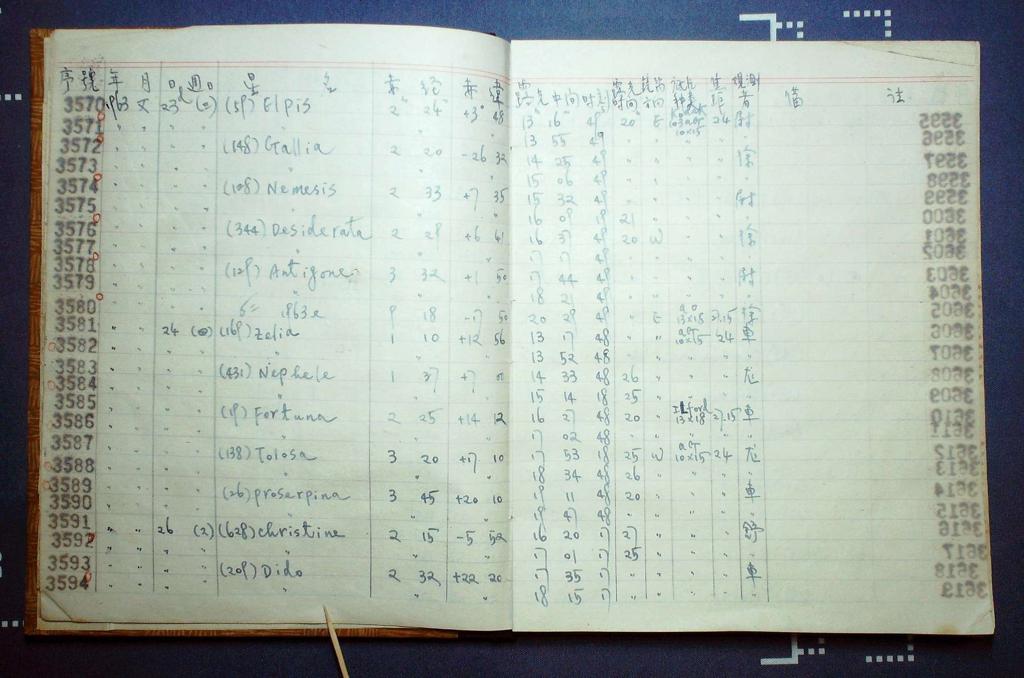 序號 年 月 日 週日 星 名 赤 經 赤 緯 露光中間時刻 露光時間 底片種类 观測者 備 註
3570 1963 23 (59) Elpis 2 24 +3 48 13 16 48 20 E 24
3571 " " " " 13 55 49 " "
3572 " " " (148) Gallia 2 20 -26 32 14 25 48 " " 徐
3573 " " " " 15 06 48 " "
3574 " " " (128) Nemesis 2 33 +7 35 15 32 48 " "
3575 " " " " 16 08 18 21 "
3576 " " " (344) Desiderata 2 28 +6 41 16 37 48 20 W 徐
3577 " " " " 17 17 48 " "
3578 " " " (129) Antigone 3 32 +1 50 17 44 48 " "
3579 " " " " 18 21 48 " "
3580 " " " 1963e 18 -17 50 20 28 48 " E 13×18 27.15 徐
3581 " " 24 (169) Zelia 1 10 +12 56 13 17 48 " " 10×15 24 車
3582 " " " " 13 52 48 " "
3583 " " " (431) Nephele 1 37 +7 01 14 33 48 26 " 尨
3584 " " " " 15 14 18 25 "
3585 " " " (19) Fortuna 2 25 +14 12 16 27 48 20 " Ilford 13×18 27.15 車
3586 " " " " 17 02 48 " "
3587 " " " (138) Tolosa 3 20 +17 10 17 53 18 25 W 10×15 24 尨
3588 " " " " 18 34 48 26 "
3589 " " " (26) Proserpina 3 45 +20 10 19 11 48 20 " 車
3590 " " " " 19 47 48 " "
3591 " " 26 (2) (628) Christine 2 15 -5 52 16 20 17 27 " 舒
3592 " " " " 17 01 17 25 "
3593 " " " (209) Dido 2 32 +22 20 17 35 17 " " 車
3594 " " " " 18 15 17 " "
3595
3596
3597
3598
3599
3600
3601
3602
3603
3604
3605
3606
3607
3608
3609
3610
3611
3612
3613
3614
3615
3616
3617
3618
3619